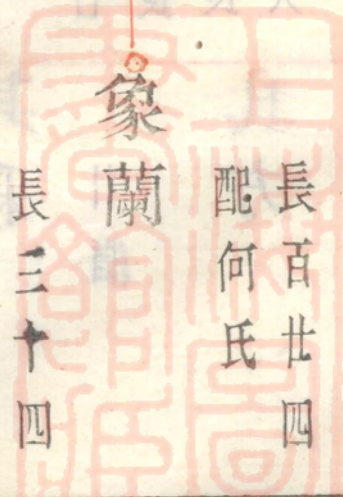 長百廿四
配何氏
象蘭
長三十四